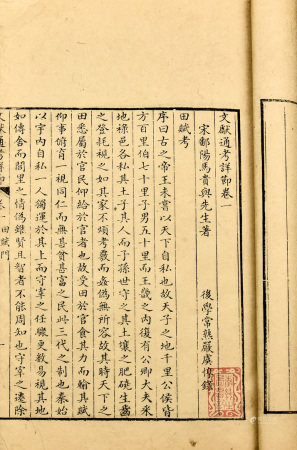 文獻通考詳節卷一
宋鄱陽馬貴與先生著
後學常熟嚴虞惇錄
田賦考
序曰古之帝王未嘗以天下自私也故天子之地千里公侯皆
方百里伯七十里子男五十里而王畿之內復有公卿大夫采
地祿邑各私其土子其人而子孫世守之其土壤之肥磽生齒
之登耗視之如其家不煩考覈而姦偽無所容故其時天下之
田悉屬於官民仰給於官者也故受田於官食其力而輸其賦
仰事俯育一視同仁而無甚貧甚富之民此三代之制也秦始
以宇內自私一人獨運於其上而守宰之任驟更數易視其地
如傳舍而閭里之情偽雖賢且智者不能周知也守宰之遷除
文獻通考詳節
卷一 田賦門
一